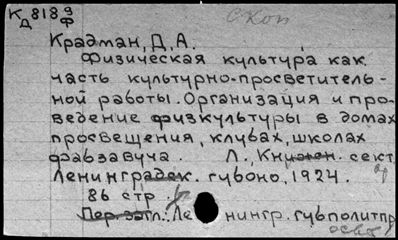 К 818 9
Д Ф
Скоп
Крадман, Д. А.
Физическая культура как
часть культурно-просветитель-
ной работы. Организация и про-
ведение физкультуры в домах
просвещения, клубах, школах
фабзавуча. Л., Книжн. сект.
Ленинградск. губоно, 1924.
86 стр.
Пер. загл.: Ленингр. губполитпр